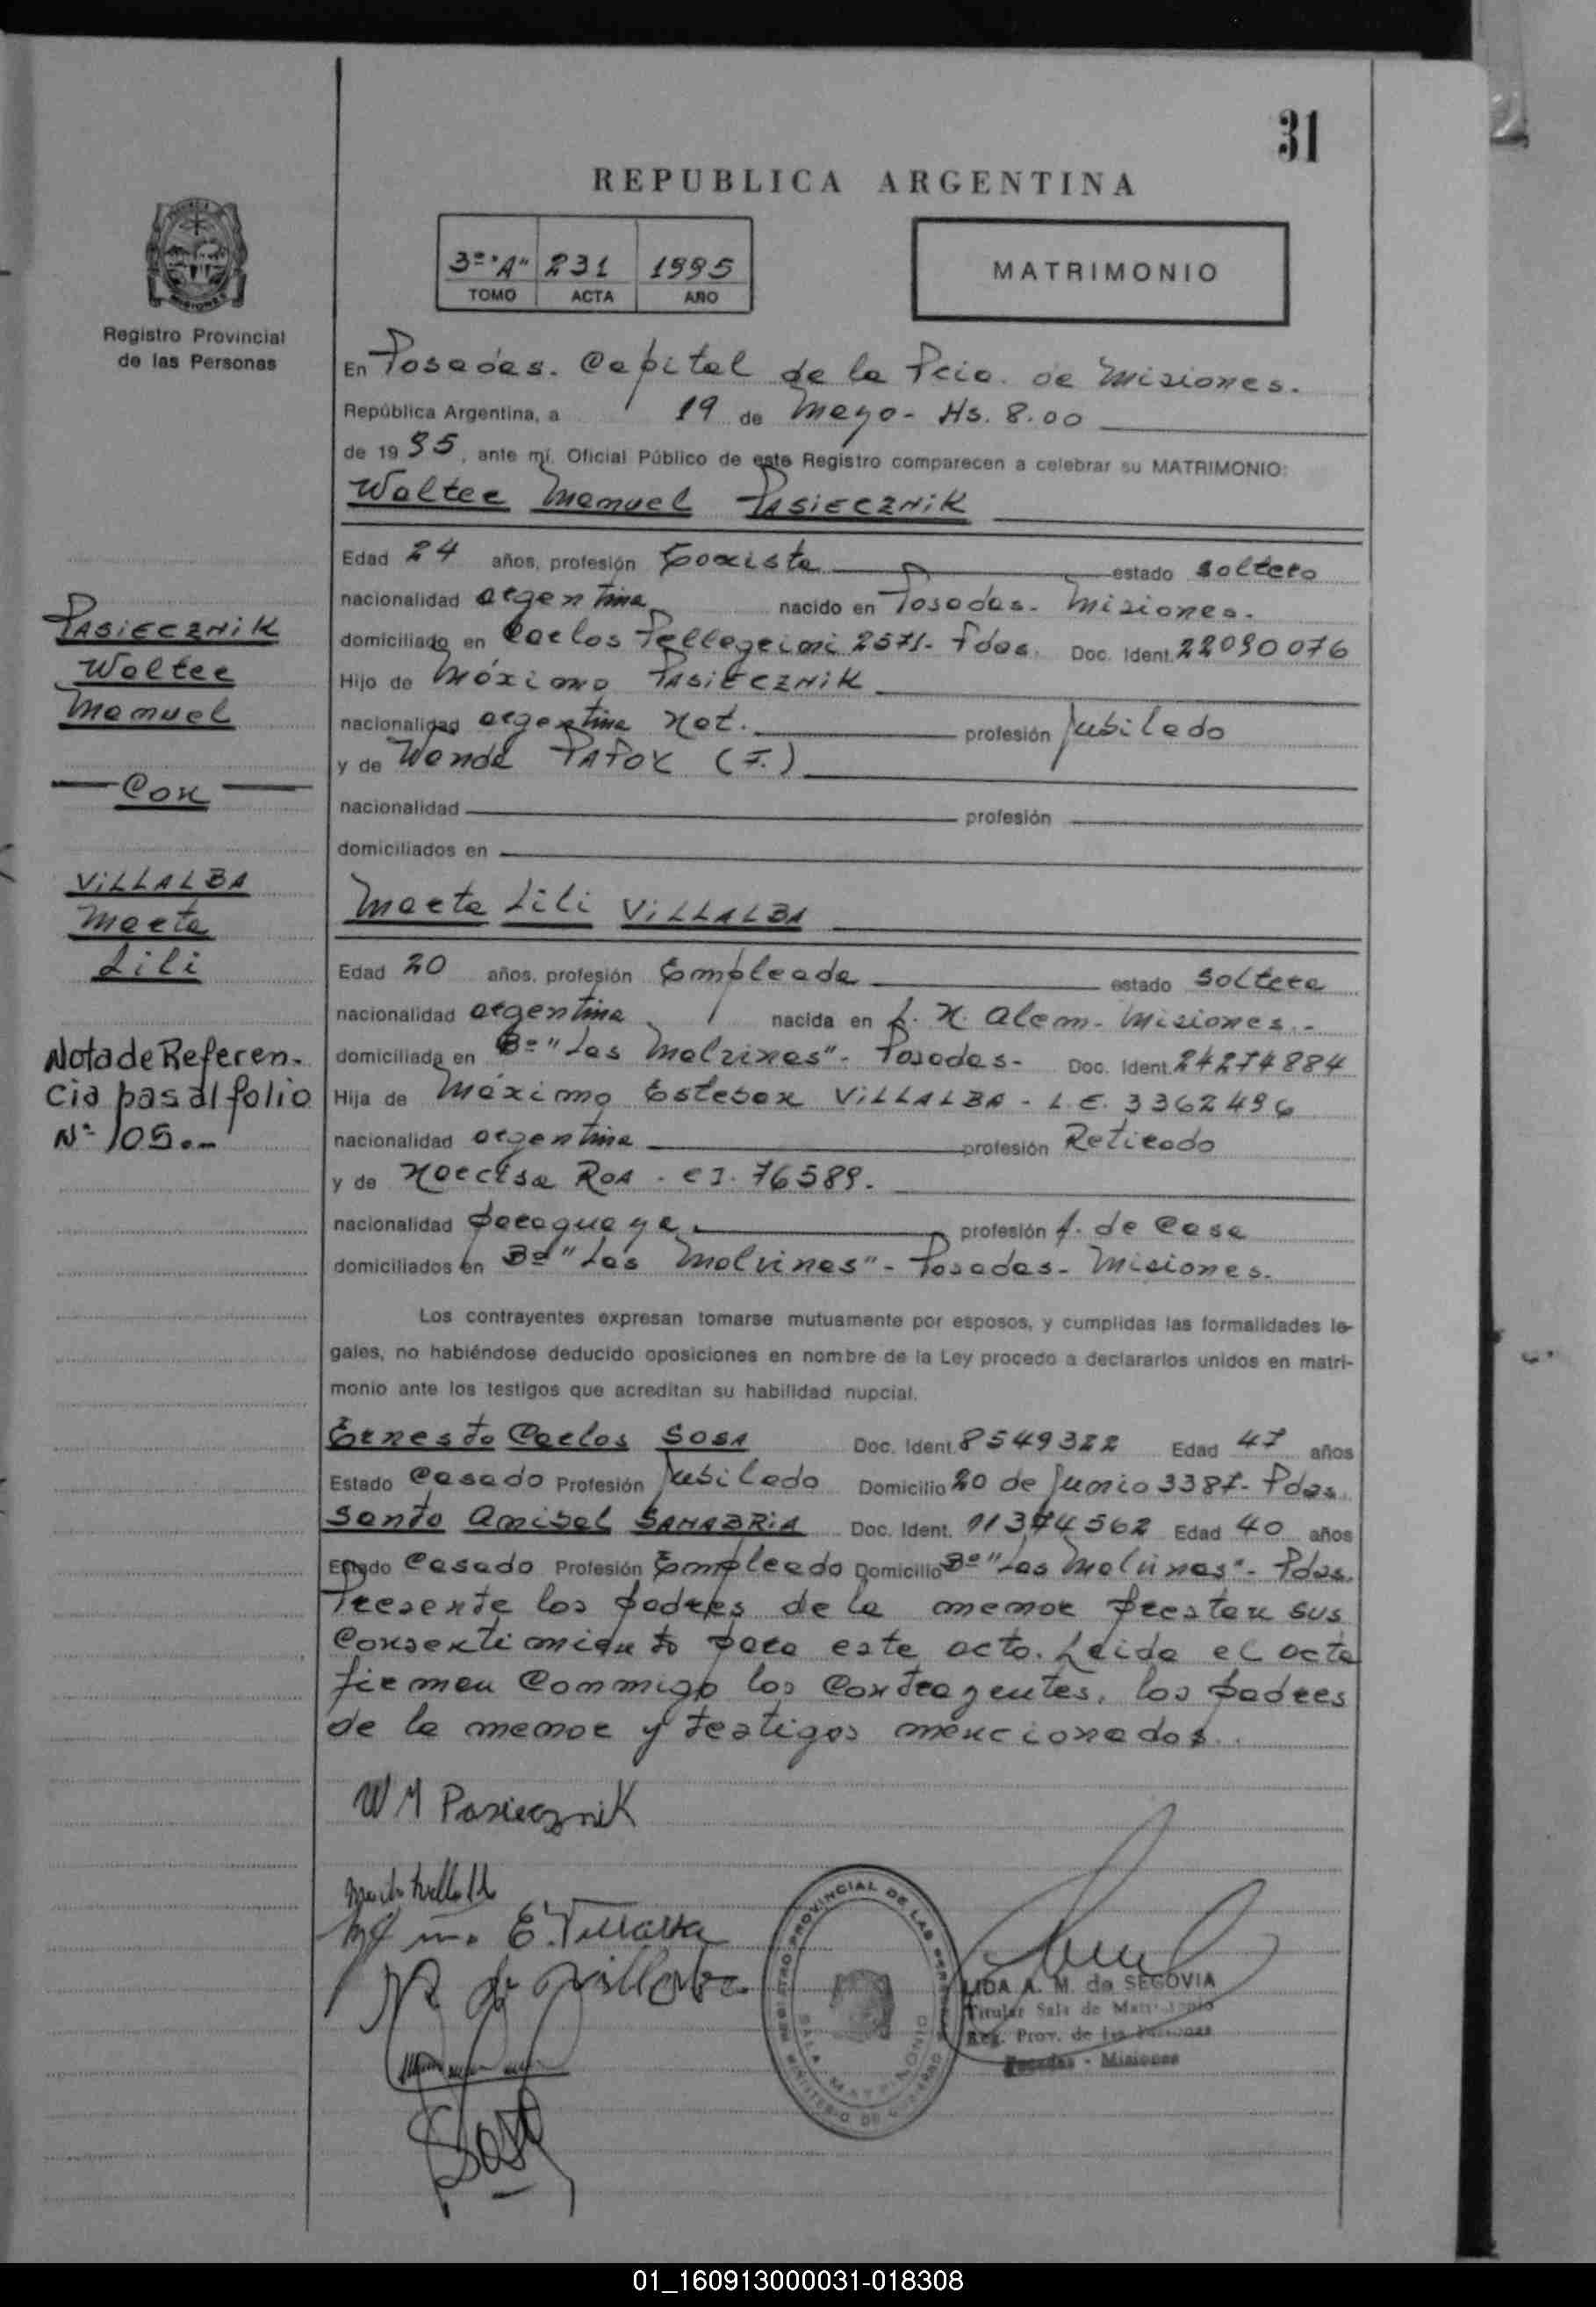 31
REPUBLICA ARGENTINA
3º "A" 231 1995
TOMO ACTA AÑO
MATRIMONIO
Registro Provincial
de las Personas
En Posadas. Capital de la Pcia. de Misiones.
República Argentina, a 19 de Mayo - Hs. 8.00
de 1995, ante mí. Oficial Público de este Registro comparecen a celebrar su MATRIMONIO:
Walter Manuel PASIECZNIK
Edad 24 años, profesión estado soltero
nacionalidad argentina nacido en Posadas - Misiones.
domiciliado en Carlos Pellegrini 2571 - Pdas. Doc. Ident. 22090076
Hijo de Máximo PASIECZNIK
nacionalidad argentina Nat. profesión Jubilado
y de Wanda PATOK (F.)
nacionalidad profesión
domiciliados en
Marta Lili VILLALBA
Edad 20 años, profesión Empleada estado soltera
nacionalidad argentina nacida en L. N. Alem - Misiones.-
domiciliada en Bº "Las Malvinas" - Posadas - Doc. Ident. 24274884
Hija de Máximo Esteban VILLALBA - L.E. 3362496
nacionalidad argentina profesión Retirado
y de Narcisa ROA - CI. 76589.
nacionalidad paraguaya profesión A. de Casa
domiciliados en Bº "Las Malvinas" - Posadas - Misiones.
Los contrayentes expresan tomarse mutuamente por esposos, y cumplidas las formalidades le-
gales, no habiéndose deducido oposiciones en nombre de la Ley procedo a declararlos unidos en matri-
monio ante los testigos que acreditan su habilidad nupcial.
Ernesto Carlos SOSA Doc. Ident. 8549322 Edad 47 años
Estado Casado Profesión Jubilado Domicilio 20 de Junio 3387 - Pdas.
Santo Anibal SANABRIA Doc. Ident. 11374562 Edad 40 años
Estado Casado Profesión Empleado Domicilio Bº "Las Malvinas" - Pdas.
Presente los padres de la menor prestan sus
Consentimiento para este acto. Leida el acta
firman Conmigo los Contrayentes, los padres
de la menor y testigos mencionados.
PASIECZNIK
Walter
Manuel
Con
VILLALBA
Marta
Lili
Nota de Referen-
cia pas al folio
Nº 105.-
W M Pasiecznik
E. Villalba
de Villalba
Sosa
REGISTRO PROVINCIAL DE LAS PERSONAS
SALA MATRIMONIO
MINISTERIO DE GOBIERNO
LIDA A. M. de SEGOVIA
Titular Sala de Matrimonio
Reg. Prov. de las Personas
Posadas - Misiones
01_160913000031-018308